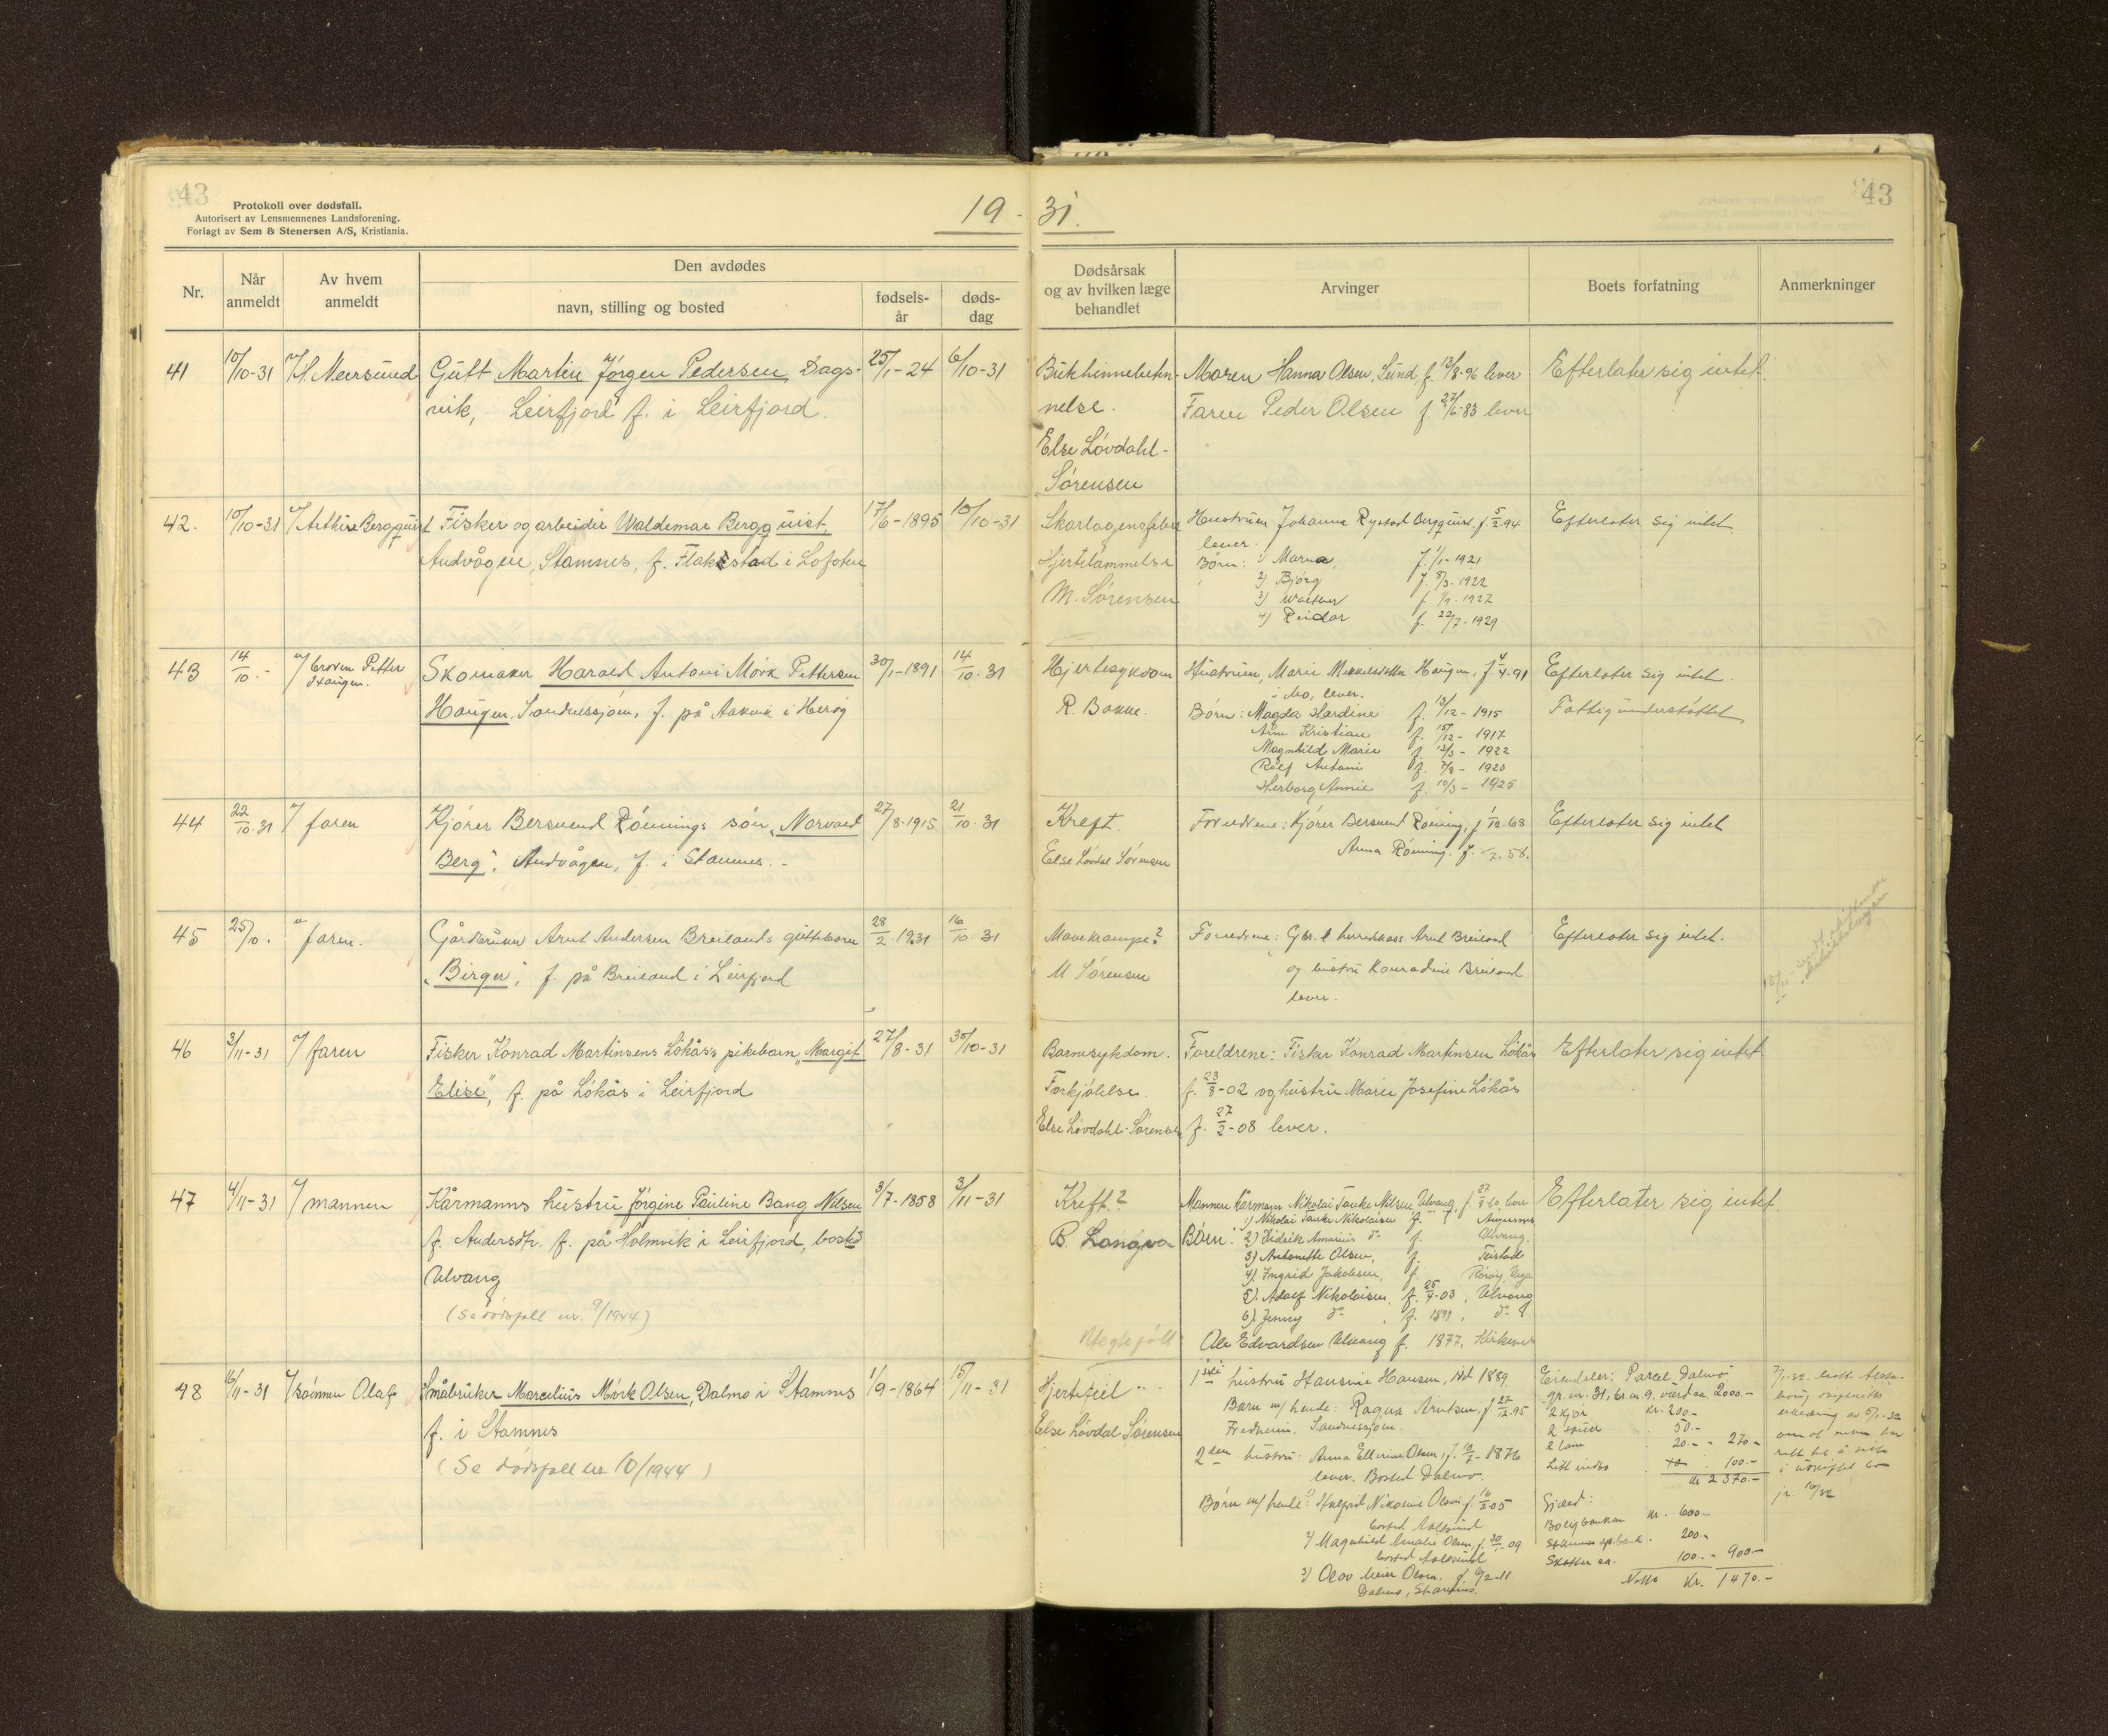 43
Protokoll over dødsfall.
Autorisert av Lensmennenes Landsforening.
Forlagt av Sem & Stenersen A/S, Kristiania.
19 - 31.
43
Nr.
Når anmeldt
Av hvem anmeldt
Den avdødes
navn, stilling og bosted
fødsels-år
døds-dag
Dødsårsak og av hvilken læge behandlet
Arvinger
Boets forfatning
Anmerkninger
41
10/10-31
Gutt Martin Jörgen Pedersen, Dags-
vik, Leirfjord f. i Leirfjord.
25/1-24
6/10-31
Bukhinnebeten-
nelse.
Else Lövdahl-
Sörensen
Maren Hanna Olsen, Lund, f. 13/8-96 lever
Faren Peder Olsen f. 27/6-83 lever
Efterlater sig intet.
42.
10/10-31
Fisker og arbeider Waldemar Bergquist,
Andvågen, Stamnes, f. Flakstad i Lofoten
17/6-1895
10/10-31
Skarlagensfeber
Hjertelammelse
M. Sörensen
Hustruen Johanna Rystad Bergquist, f. 5/2.94
lever.
Börn: 1) Marna, f. 1/1-1921
2) Björg f. 8/3-1922
3) Walther f. 1/9-1927
4) Reidar f. 22/7-1929
Efterlater sig intet
43
14/10.-
Skomaker Harald Antoni Mörk Pettersen
Haugen, Sandnessjöen, f. på Aakvik i Heröy
30/1-1891
14/10.31
Hjertesykdom
R. Bakke.
Hustruen, Marie Mikkelsdatter Haugen, f. 4/4.91
i Mo, lever.
Börn: Magda Hardine f. 13/12-1915
Arne Kristian f. 15/12-1917
Magnhild Marie f. 13/3-1922
Rolf Antoni f. 7/8-1923
Herborg Annie f. 10/3-1925
Efterlater sig intet.
Fattigunderstöttet
44
22/10.31
v/ faren
Kjörer Bersvend Röinings sön, "Norvald
Berg", Andvågen, f. i Stamnes.-
27/8-1915
21/10.31
Kreft.
Else Lövdal Sörensen
Foreldrene: Kjörer Bersvend Röining, f. 1/12.68
Anna Röining, f.
Efterlater sig intet
45
25/10.
" faren.
Gårdbruker Arnt Andersen Breilands guttebarn
"Birger", f. på Breiland i Leirfjord
28/2.1931
16/10.31
Mavekrampe?
M Sörensen
Foreldrene: Gbr. & herredskass. Arnt Breiland
og hustru Konradine Breiland
lever.
Efterlater sig intet.
46
3/11-31
v/ faren
Fisker Konrad Martinsens Lökås's pikebarn "Margit
Elise", f. på Lökås i Leirfjord
27/8-31
30/10-31
Barnesykdom.
Forkjölelse.
Else Lövdahl-Sörensen
Foreldrene: Fisker Konrad Martinsen Lökås
f. 23/8-02 og hustru Marie Josefine Lökås
f. 27/2-08 lever.
Efterlater sig intet
47
4/11-31
v/ mannen
Kårmanns hustru Jörgine Pauline Bang Nilsen
f. Andersdtr. f. på Holmvik i Leirfjord, bosted
Ulvang
(Se dödsfall nr. 9/1944)
3/7-1858
3/11-31
Kreft?
B. Langva
Mannen kårmann Nikolai Tanke Nilsen Ulvang, f. lever
Börn: 1) Nikolai Tanke Nikolaisen f.
2) Fidrik Amarius do f. Ulvang.
3) Antonette Olsen, f. Teistad
4) Ingrid Jakobsen, f. Röröy, Vega
5) Adolf Nikolaisen, f. 25/7-03, Ulvang
6) Jenny do, f. 1899, do
Ole Edvardsen Ulvang f. 1877, Kirkenes
Efterlater sig intet.
48
16/11-31
v/ sönnen Olaf
Småbruker Marcelius Mörk Olsen, Dalmo i Stamnes
f. i Stamnes
(Se dödsfall nr 10/1944)
1/9-1864
15/11-31
Hjertefeil
Else Lövdal Sörensen
1ste hustru Hansine Hansen, död 1889.
Barn m/ hende: Ragna Arntsen, f. 27/12.95
Fredheim, Sandnessjöen.
2den hustru: Anna Ellerine Olsen, f. 10/7-1876
lever. Bosted Dalmo.
Börn m/ hende: 1) Halfrid Nikoline Olsen f. 16/2 05
bosted Aalesund
2) Magnhild Amalie Olsen, f. 09
bosted Aalesund
3) Olav Meier Olsen. f. 9/2-11
Dalmo, Stamnes.
Eiendeler: Parcel Dalmo
gr.nr. 31, br.nr. 9, værd ca. 2000.-
2 kjör kr. 200.-
2 sauer 50.-
2 lam 20.- - 270.-
Litt indbo 100.-
kr 2370.-
Gjæld:
Boligbanken kr. 600.-
Stamnes sp.bank. 200.-
Skatter ca. 100.- - 900.-
Netto kr. 1470.-